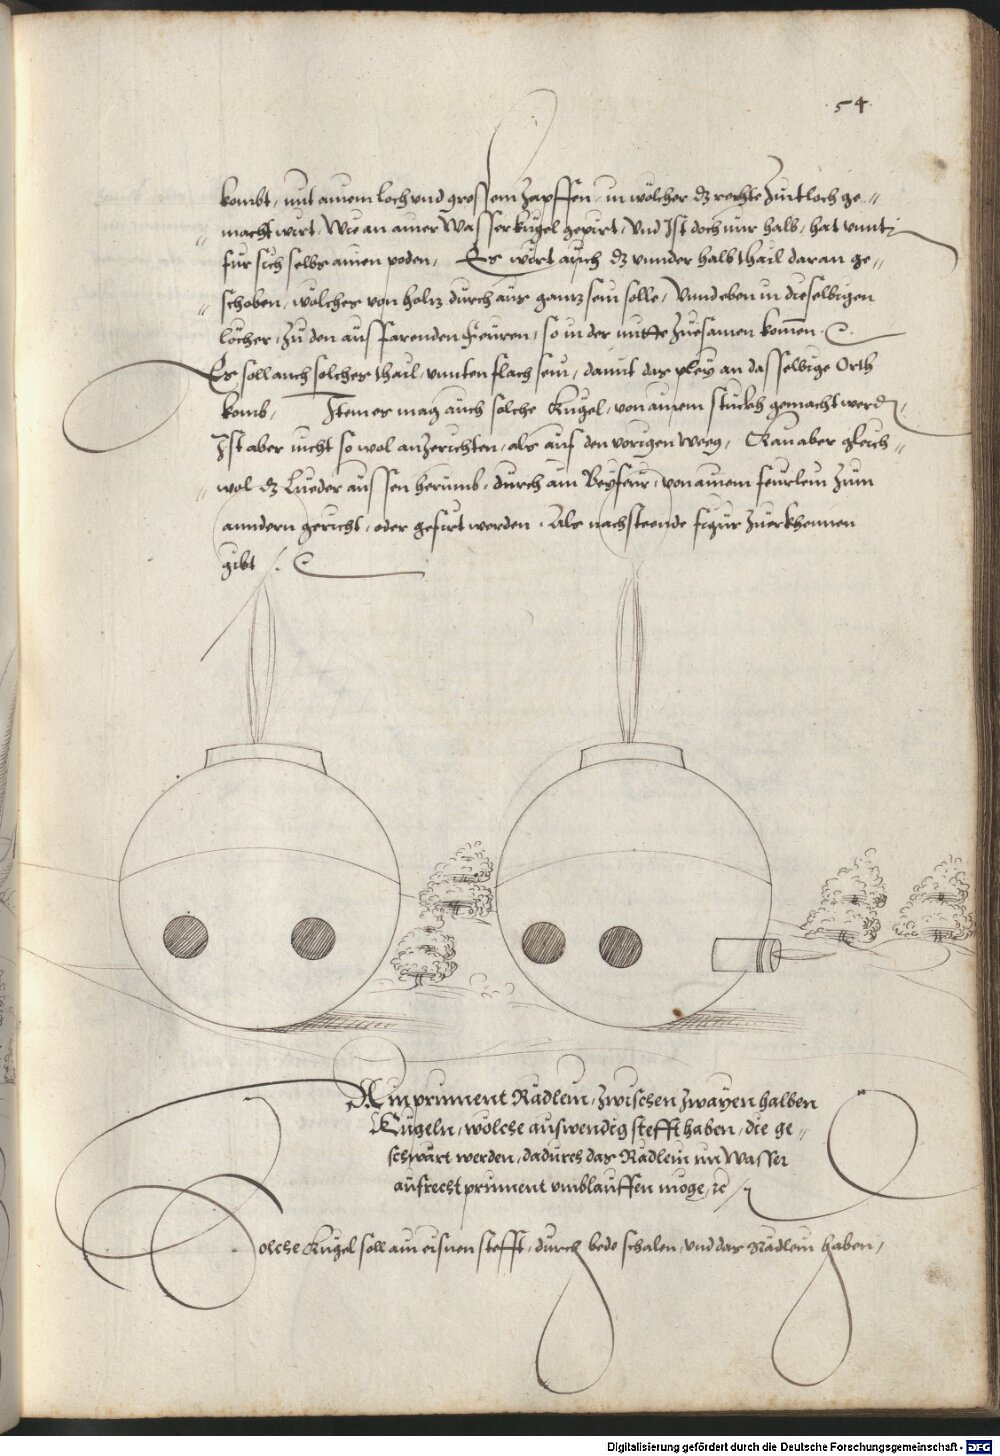 54
kombt, mit ainem loch und grossem Zapffen, in wölcher dz rechte Zintloch ge„
„ macht wirt, Wie an ainer Wasserkugel geziert, Und Ist doch nur halb, hat unnt
für sich selbs ainen poden, Es wirt auch dz unnder halb thail daran ge„
„ schoben, wölches von holtz durch aus gantz sein solle, Unnd eben in dieselbigen
löcher, Zu den aus farenden Feüren, so in der mitte Zuesamen komen.
Es soll auch solches thail, unnten flach sein, damit das pley an dasselbige Orth
komb, Item es mag auch solche Kugel, von ainem stückh gemacht werdn,
Ist aber nicht so wol anzerichten, als auf den vorigen weeg, Kan aber gleich„
„ wol dz Lueder aussen herumb, durch ain Beyfeür, von ainem feürlein zum
anndern gericht, oder gefiert werden. Als nachsteende figur Zuerkhennen
gibt
Ain prinnent Rädlein, Zwischen Zwayen halben
Kugeln, wölche auswendig stefft haben, die ge„
schwärt werden, dadurch das Rädlein im Wasser
aufrecht prinnent umblauffen möge, etc
olche Kugel soll ain eisnen stefft, durch bede schalen, und das Rädlein haben,
Digitalisierung gefördert durch die Deutsche Forschungsgemeinschaft - DFG